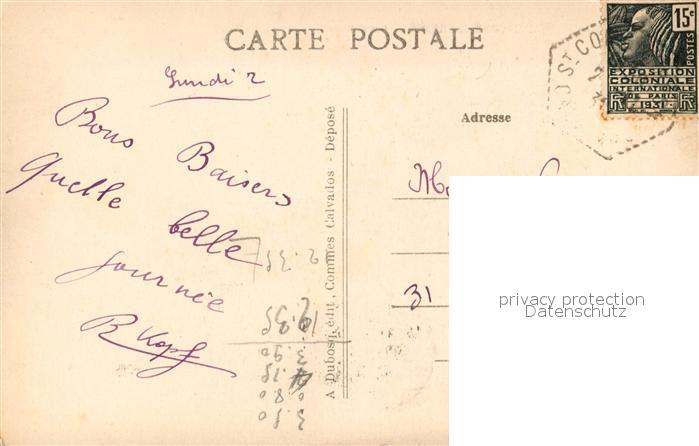 CARTE POSTALE
Lundi 2
Bons Baisers
Quelle belle
journée
R Kopf
A Dubosq édit, Commes Calvados - Déposé
Adresse
31
ST CO
15c
POSTES
EXPOSITION
COLONIALE
INTERNATIONALE
DE PARIS
1931
RF RF
privacy protection
Datenschutz
2.35
3.90
0.80
3.50